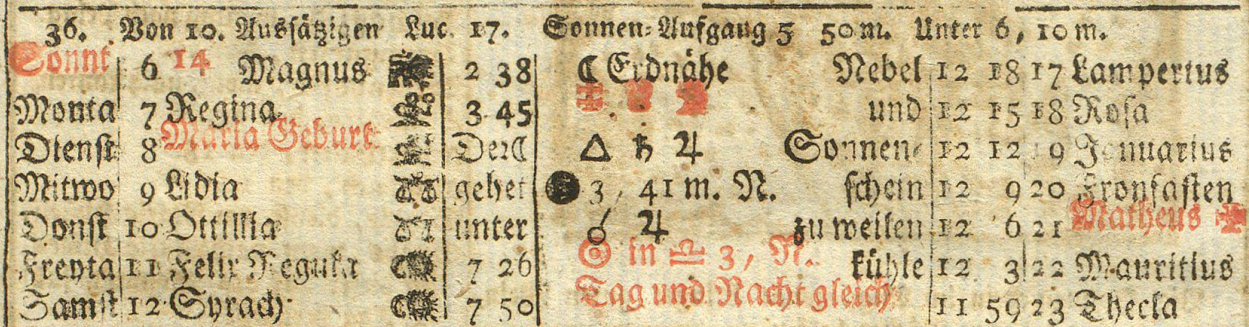 36. Von 10. Aussätzigen Luc. 17. Sonnen-Aufgang 5 50 m. Unter 6, 10 m.
Sonnt 6 14 Magnus 2 38 ☾ Erdnähe Nebel 12 18 17 Lampertus
Monta 7 Regina 3 45 und 12 15 18 Rosa
Dienst 8 Maria Geburt Der ☾ △ ♄ ♃ Sonnen- 12 12 19 Januarius
Mitwo 9 Lidia gehet 3, 41 m. N. schein 12 9 20 Fronfasten
Donst 10 Ottillia unter ☌ ♃ zu weilen 12 6 21 Matheus
Freyta 11 Felix Regula 7 26 ☉ in ♎ 3, N. kühle 12 3 22 Mauritius
Samst 12 Syrach 7 50 Tag und Nacht gleich 11 59 23 Thecla